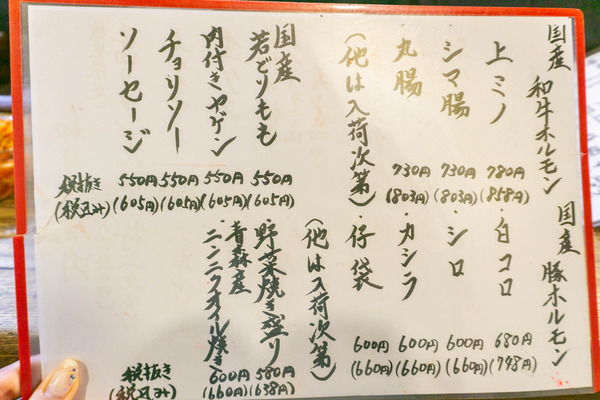 国産 和牛ホルモン
上ミノ 780円 (858円)
シマ腸 730円 (803円)
丸腸 730円 (803円)
(他は入荷次第)
国産
若どりもも 550円 (605円)
肉付きヤゲン 550円 (605円)
チョリソー 550円 (605円)
ソーセージ 550円 (605円)
税抜き
(税込み)
国産 豚ホルモン
・白コロ 680円 (748円)
・シロ 600円 (660円)
・カシラ 600円 (660円)
・仔袋 600円 (660円)
(他は入荷次第)
・野菜焼き盛り 580円 (638円)
・青森産
ニンニクオイル焼き 600円 (660円)
税抜き
(税込み)